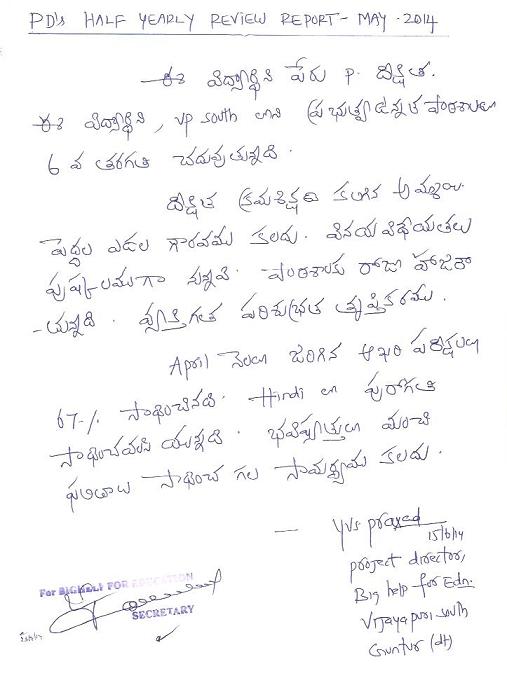 PD's HALF YEARLY REVIEW REPORT - MAY - 2014
ఈ విద్యార్థిని పేరు P. దీక్షిత.
ఈ విద్యార్థిని, VP South లోని ప్రభుత్వ ఉన్నత పాఠశాలలో
6 వ తరగతి చదువుతున్నది.
దీక్షిత క్రమశిక్షణ కలిగిన అమ్మాయి.
పెద్దల ఎడల గౌరవము కలదు. వినయ విధేయతలు
పుష్కలముగా నున్నవి. పాఠశాలకు రోజు హాజరౌ
-చున్నది. వ్యక్తిగత పరిశుభ్రత తృప్తికరము.
April నెలలో జరిగిన ఆఖరి పరీక్షలలో
67-/. సాధించినది. Hindi లో పురోగతి
సాధించవలసి యున్నది. భవిష్యత్తులో మంచి
ఫలితాలు సాధించ గల సామర్థ్యము కలదు.
- YVS prasad
15/6/14
project director,
Big help for Edn.
Vijayapuri South
Guntur (dt)
For BIGHELP FOR EDUCATION
SECRETARY